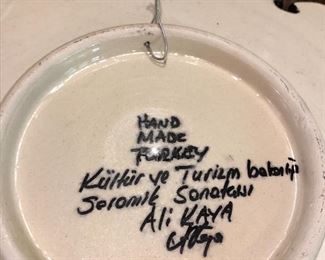 HAND
MADE
TURKEY
Kültür ve Turizm bakanlığı
Seramik Sanatcısı
Ali KAYA